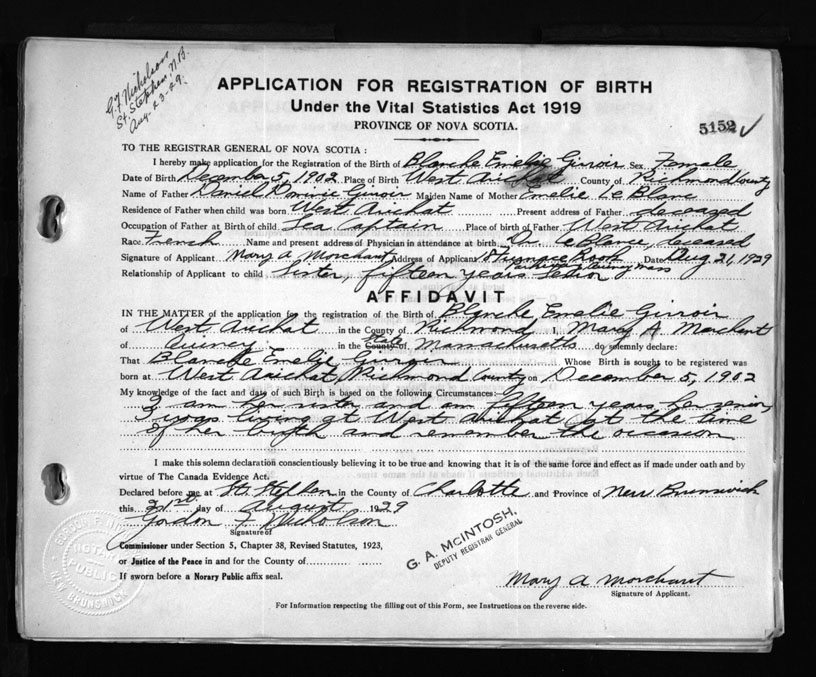 G. F. Nicholson
St. Stephen N.B.
Aug. 23-29.
APPLICATION FOR REGISTRATION OF BIRTH
Under the Vital Statistics Act 1919
PROVINCE OF NOVA SCOTIA.
5152
TO THE REGISTRAR GENERAL OF NOVA SCOTIA :
I hereby make application for the Registration of the Birth of Blanche Emelie Girroir Sex Female
Date of Birth December 5, 1902 Place of Birth West Arichat County of Richmond County
Name of Father Daniel Dominic Girroir Maiden Name of Mother Emelie Le Blanc
Residence of Father when child was born West Arichat Present address of Father deceased
Occupation of Father at Birth of child Sea Captain Place of birth of Father West Arichat
Race French Name and present address of Physician in attendance at birth Dr. LeBlanc, deceased
Signature of Applicant Mary A Morchant Address of Applicant Date Aug 21, 1929
Quincy Mass
Relationship of Applicant to child Sister, fifteen years Senior
AFFIDAVIT
IN THE MATTER of the application for the registration of the Birth of Blanche Emelie Girroir
of West Arichat in the County of Richmond I, Mary A. Morchant
of Quincy in the County of State Massachusetts do solemnly declare:
That Blanche Emelie Girroir Whose Birth is sought to be registered was
born at West Arichat, Richmond County on December 5, 1902
My knowledge of the fact and date of such Birth is based on the following Circumstances:—
I am her sister and am fifteen years her senior,
I was living at West Arichat at the time
of her birth and remember the occasion
I make this solemn declaration conscientiously believing it to be true and knowing that it is of the same force and effect as if made under oath and by
virtue of The Canada Evidence Act.
Declared before me at St. Stephen in the County of Charlotte and Province of New Brunswick
this 21st. day of August 1929
Gordon F Nicholson
Signature of
Commissioner under Section 5, Chapter 38, Revised Statutes, 1923,
or Justice of the Peace in and for the County of
If sworn before a Norary Public affix seal.
G. A. McINTOSH,
DEPUTY REGISTRAR GENERAL
Mary A Morchant
Signature of Applicant.
For Information respecting the filling out of this Form, see Instructions on the reverse side.